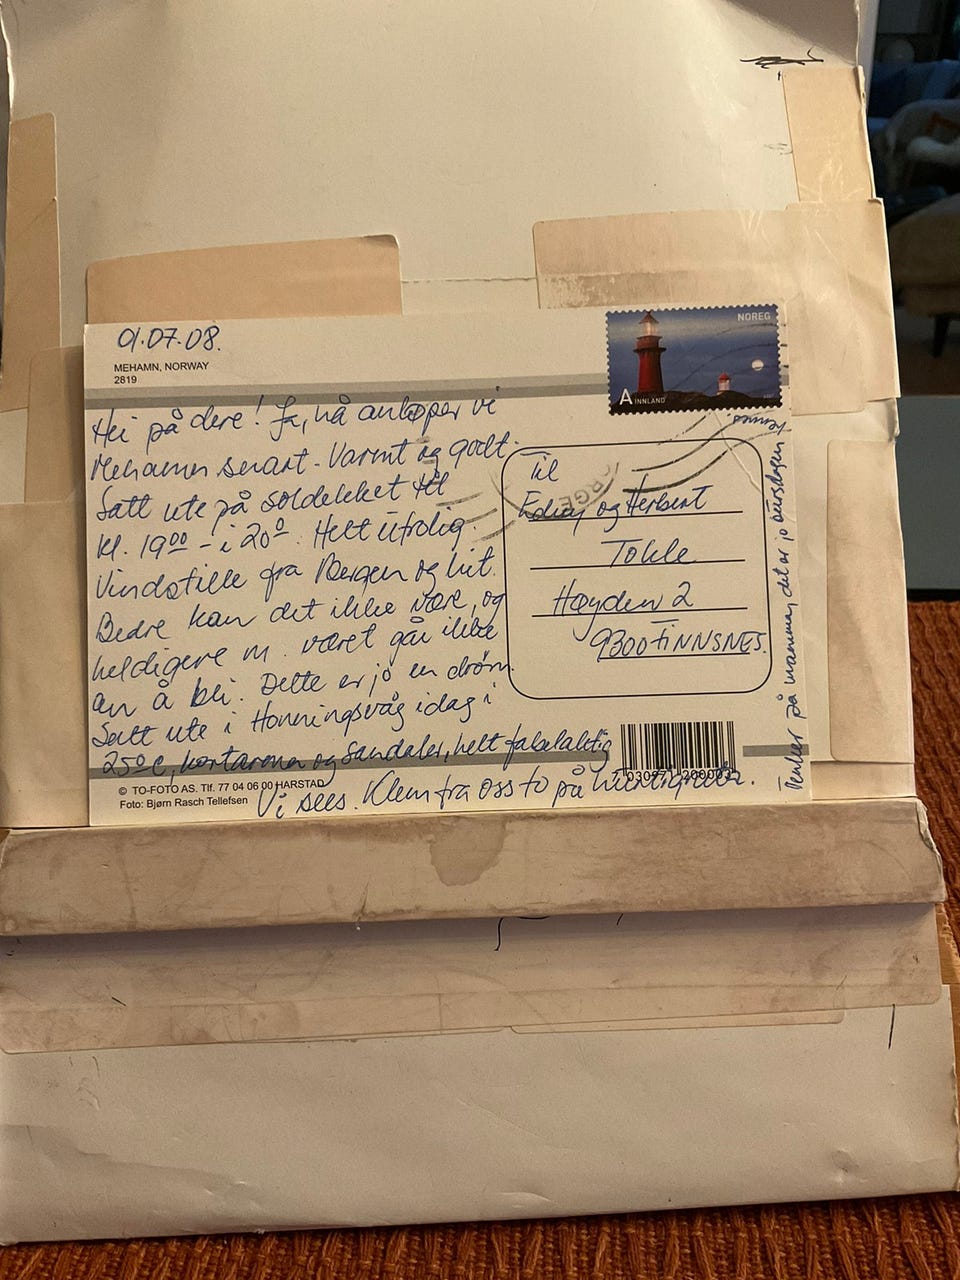 01.07.08.
MEHAMN, NORWAY
2819
NOREG
A INNLAND
Hei på dere! Ja, nå anløper vi
Mehamn snart. Varmt og godt.
Satt ute på soldekket til
kl. 19⁰⁰ - i 20°. Helt utrolig.
Vindstille fra Bergen og hit.
Bedre kan det ikke være, og
heldigere m. været går ikke
an å bli. Dette er jo en drøm.
Satt ute i Honningsvåg idag i
25°C, kortarma og sandaler, helt fabelaktig
Vi sees. Klem fra oss to på hurtigruta.
Til
Edny og Herbert
Tokle
Høyden 2
9300 FINNSNES.
RGE
7 030971 200003
© TO-FOTO AS. Tlf. 77 04 06 00 HARSTAD
Foto: Bjørn Rasch Tellefsen
Tenker på mamma, det er jo bursdagen
hennes